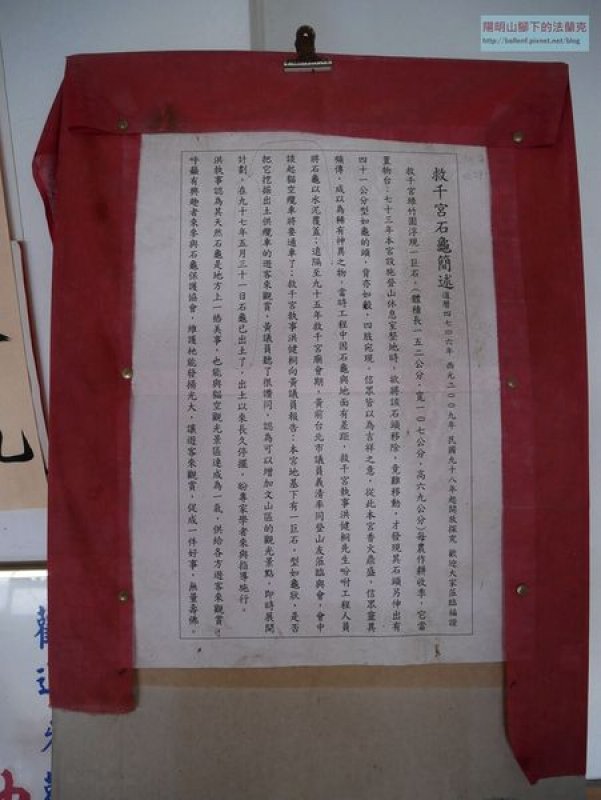 陽明山腳下的法蘭克
http://ballenf.pixnet.net/blog
救千宮石龜簡述 道曆四七0六年 西元二00九年 民國九十八年起開放探究 歡迎大家蒞臨福證
救千宮綠竹園浮現一巨石，（體積長一五二公分，寬一0七公分，高六九公分）每農作耕收季，它當
置物台；七十三年本宮設施登山休息室整地時，欲將該石頭移除，竟難移動，才發現其石頭另伸出有
四十一公分型如龜的頭，背亦如殼，四肢宛現，信眾皆以為吉祥之意，從此本宮香火鼎盛，信眾靈異
頻傳，咸以為稀有神異之物，當時工程中因石龜與地面有差距，救千宮執事洪健桐先生吩咐工程人員
將石龜以水泥覆蓋；遠隔至九十五年救千宮廟會期，黃前台北市議員義清率同登山友蒞臨與會，會中
談起貓空纜車將要通車了；救千宮執事洪健桐向黃議員報告：本宮地基下有一巨石，型如龜狀，是否
把它挖掘出土供纜車的遊客來觀賞，黃議員聽了很讚同，認為可以增加文山區的觀光景點，即時展開
計劃，在九十七年五月三十一日石龜已出土了，出土以來長久停擺，盼專家學者來與指導施行。
洪執事認為其天然石龜是地方上一樁美事，也能與貓空觀光景區連成為一氣，供給各方遊客來觀賞；
呼籲有興趣者來參與石龜保護協會，維護祂能發揚光大，讓遊客來觀賞，促成一件好事，無量壽佛。